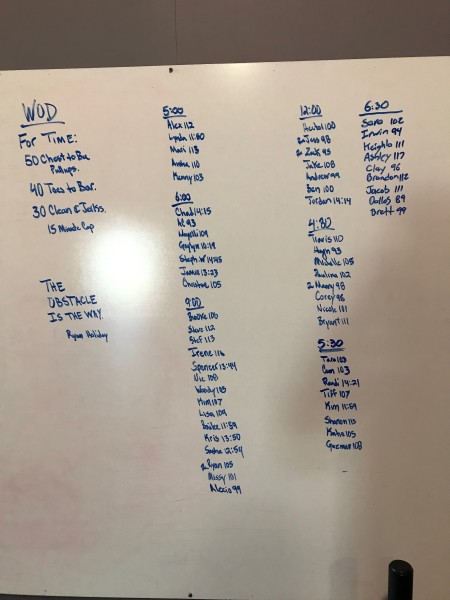 WOD
For Time:
50 Chest to Bar
Pullups.
40 Toes to Bar.
30 Clean & Jerks.
15 Minute Cap
THE
OBSTACLE
IS THE WAY.
Ryan Holiday
5:00
Alex 112
Lynda 11:50
Mari 113
110
Kenny 103
6:00
Chad 14:15
Al 93
109
10:19
Steph W 14:45
James 13:23
Christine 105
9:00
Brooke 106
Steve 112
Stef 113
Irene 116
Spencer 13:44
Vic 108
Woody 113
Kim 107
Lisa 109
11:59
Kris 13:50
Sasha 12:54
Ryan 105
Missy 101
Alexis 99
12:00
100
Jess 98
Zack 95
Jake 108
Andrew 99
Ben 100
Jordan 14:14
4:30
Travis 110
93
Michelle 105
Paulina 102
Manny 98
Corey 96
Nicole 101
Bryant 111
5:30
Tara 103
Cam 103
Randi 14:21
Tiff 107
Kim 11:59
Sharon 113
Katie 105
Guzman 108
6:30
Sara 102
Irwin 94
Keighla 111
Ashley 117
Clay 96
Brandon 112
Jacob 111
Dallas 89
Brett 99